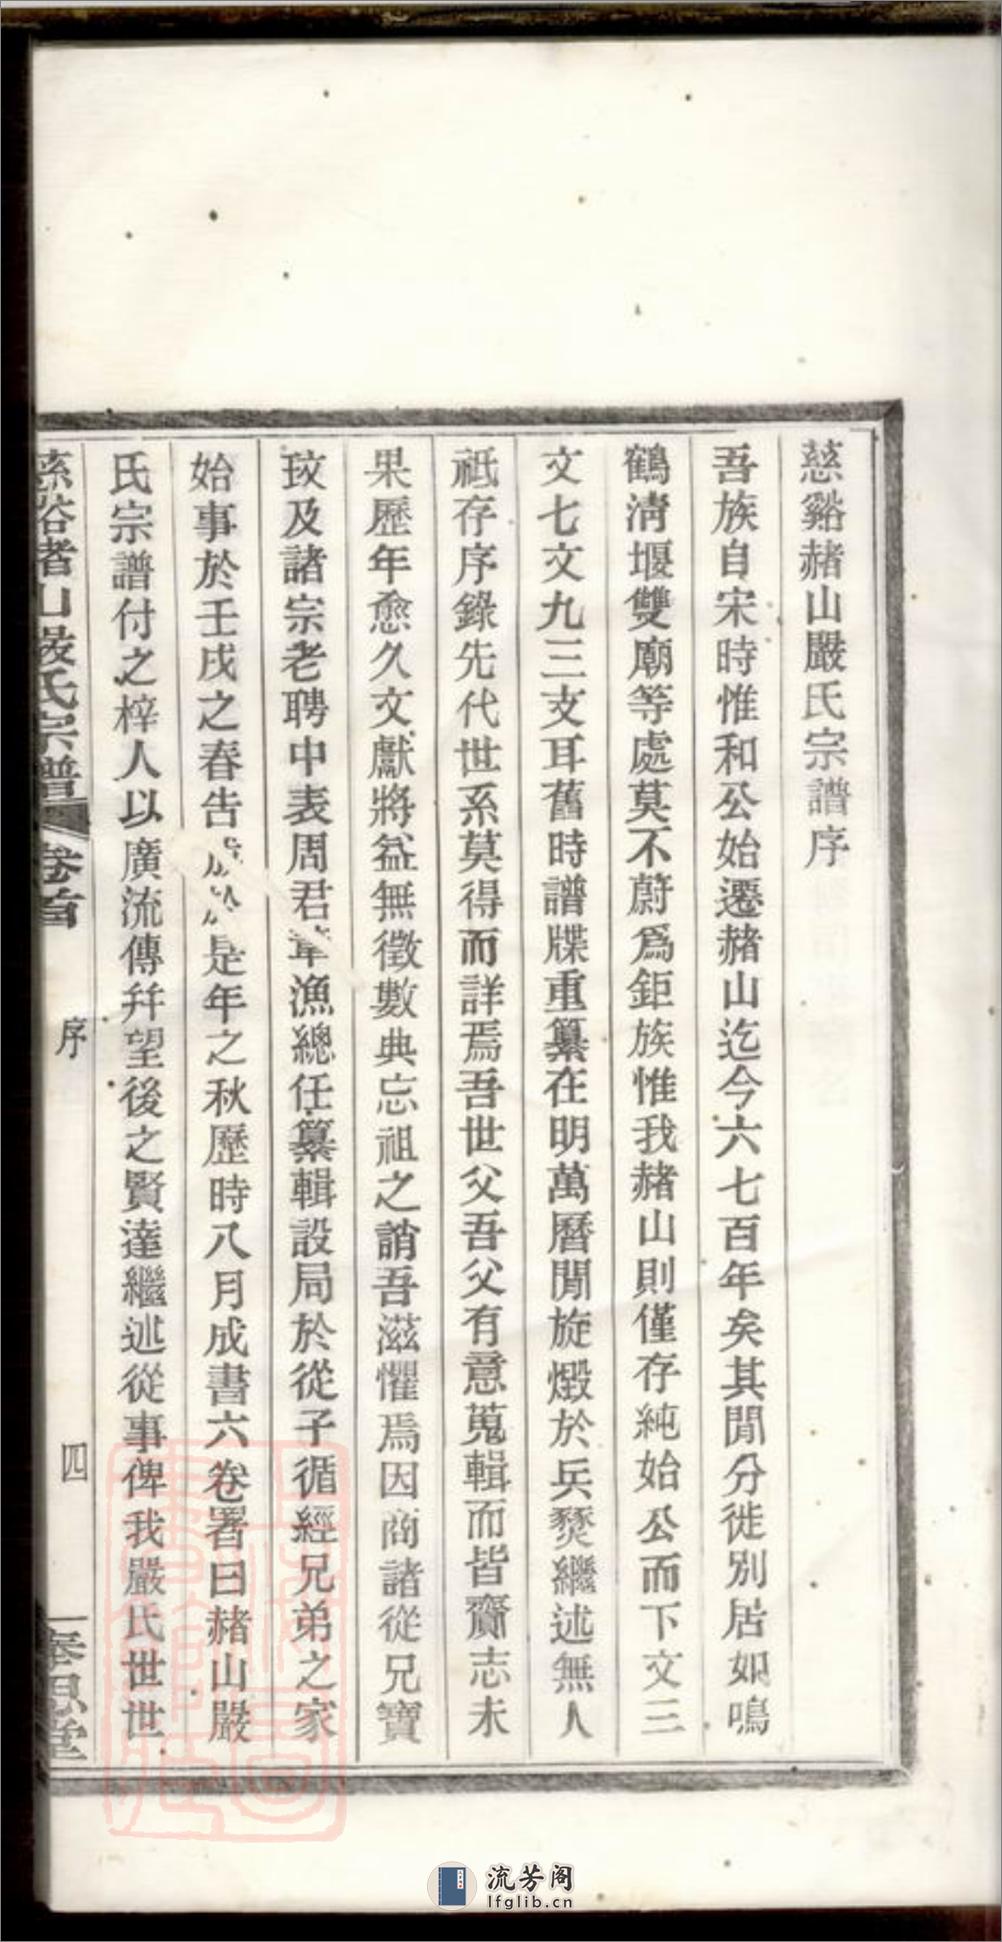 慈谿赭山嚴氏宗譜序
吾族自宋時惟和公始遷赭山迄今六七百年矣其閒分徙別居如鳴
鶴淸堰雙廟等處莫不蔚爲鉅族惟我赭山則僅存純始公而下文三
文七文九三支耳舊時譜牒重纂在明萬曆閒旋燬於兵燹繼述無人
祗存序錄先代世系莫得而詳焉吾世父吾父有意蒐輯而皆齎志未
果歷年愈久文獻將益無徵數典忘祖之誚吾滋懼焉因商諸從兄寶
玟及諸宗老聘中表周君葦漁總任纂輯設局於從子循經兄弟之家
始事於壬戌之春告成於是年之秋歷時八月成書六卷署曰赭山嚴
氏宗譜付之梓人以廣流傳幷望後之賢達繼述從事俾我嚴氏世世
慈谿赭山嚴氏宗譜
卷首
序
四
流芳阁
lfglib.cn